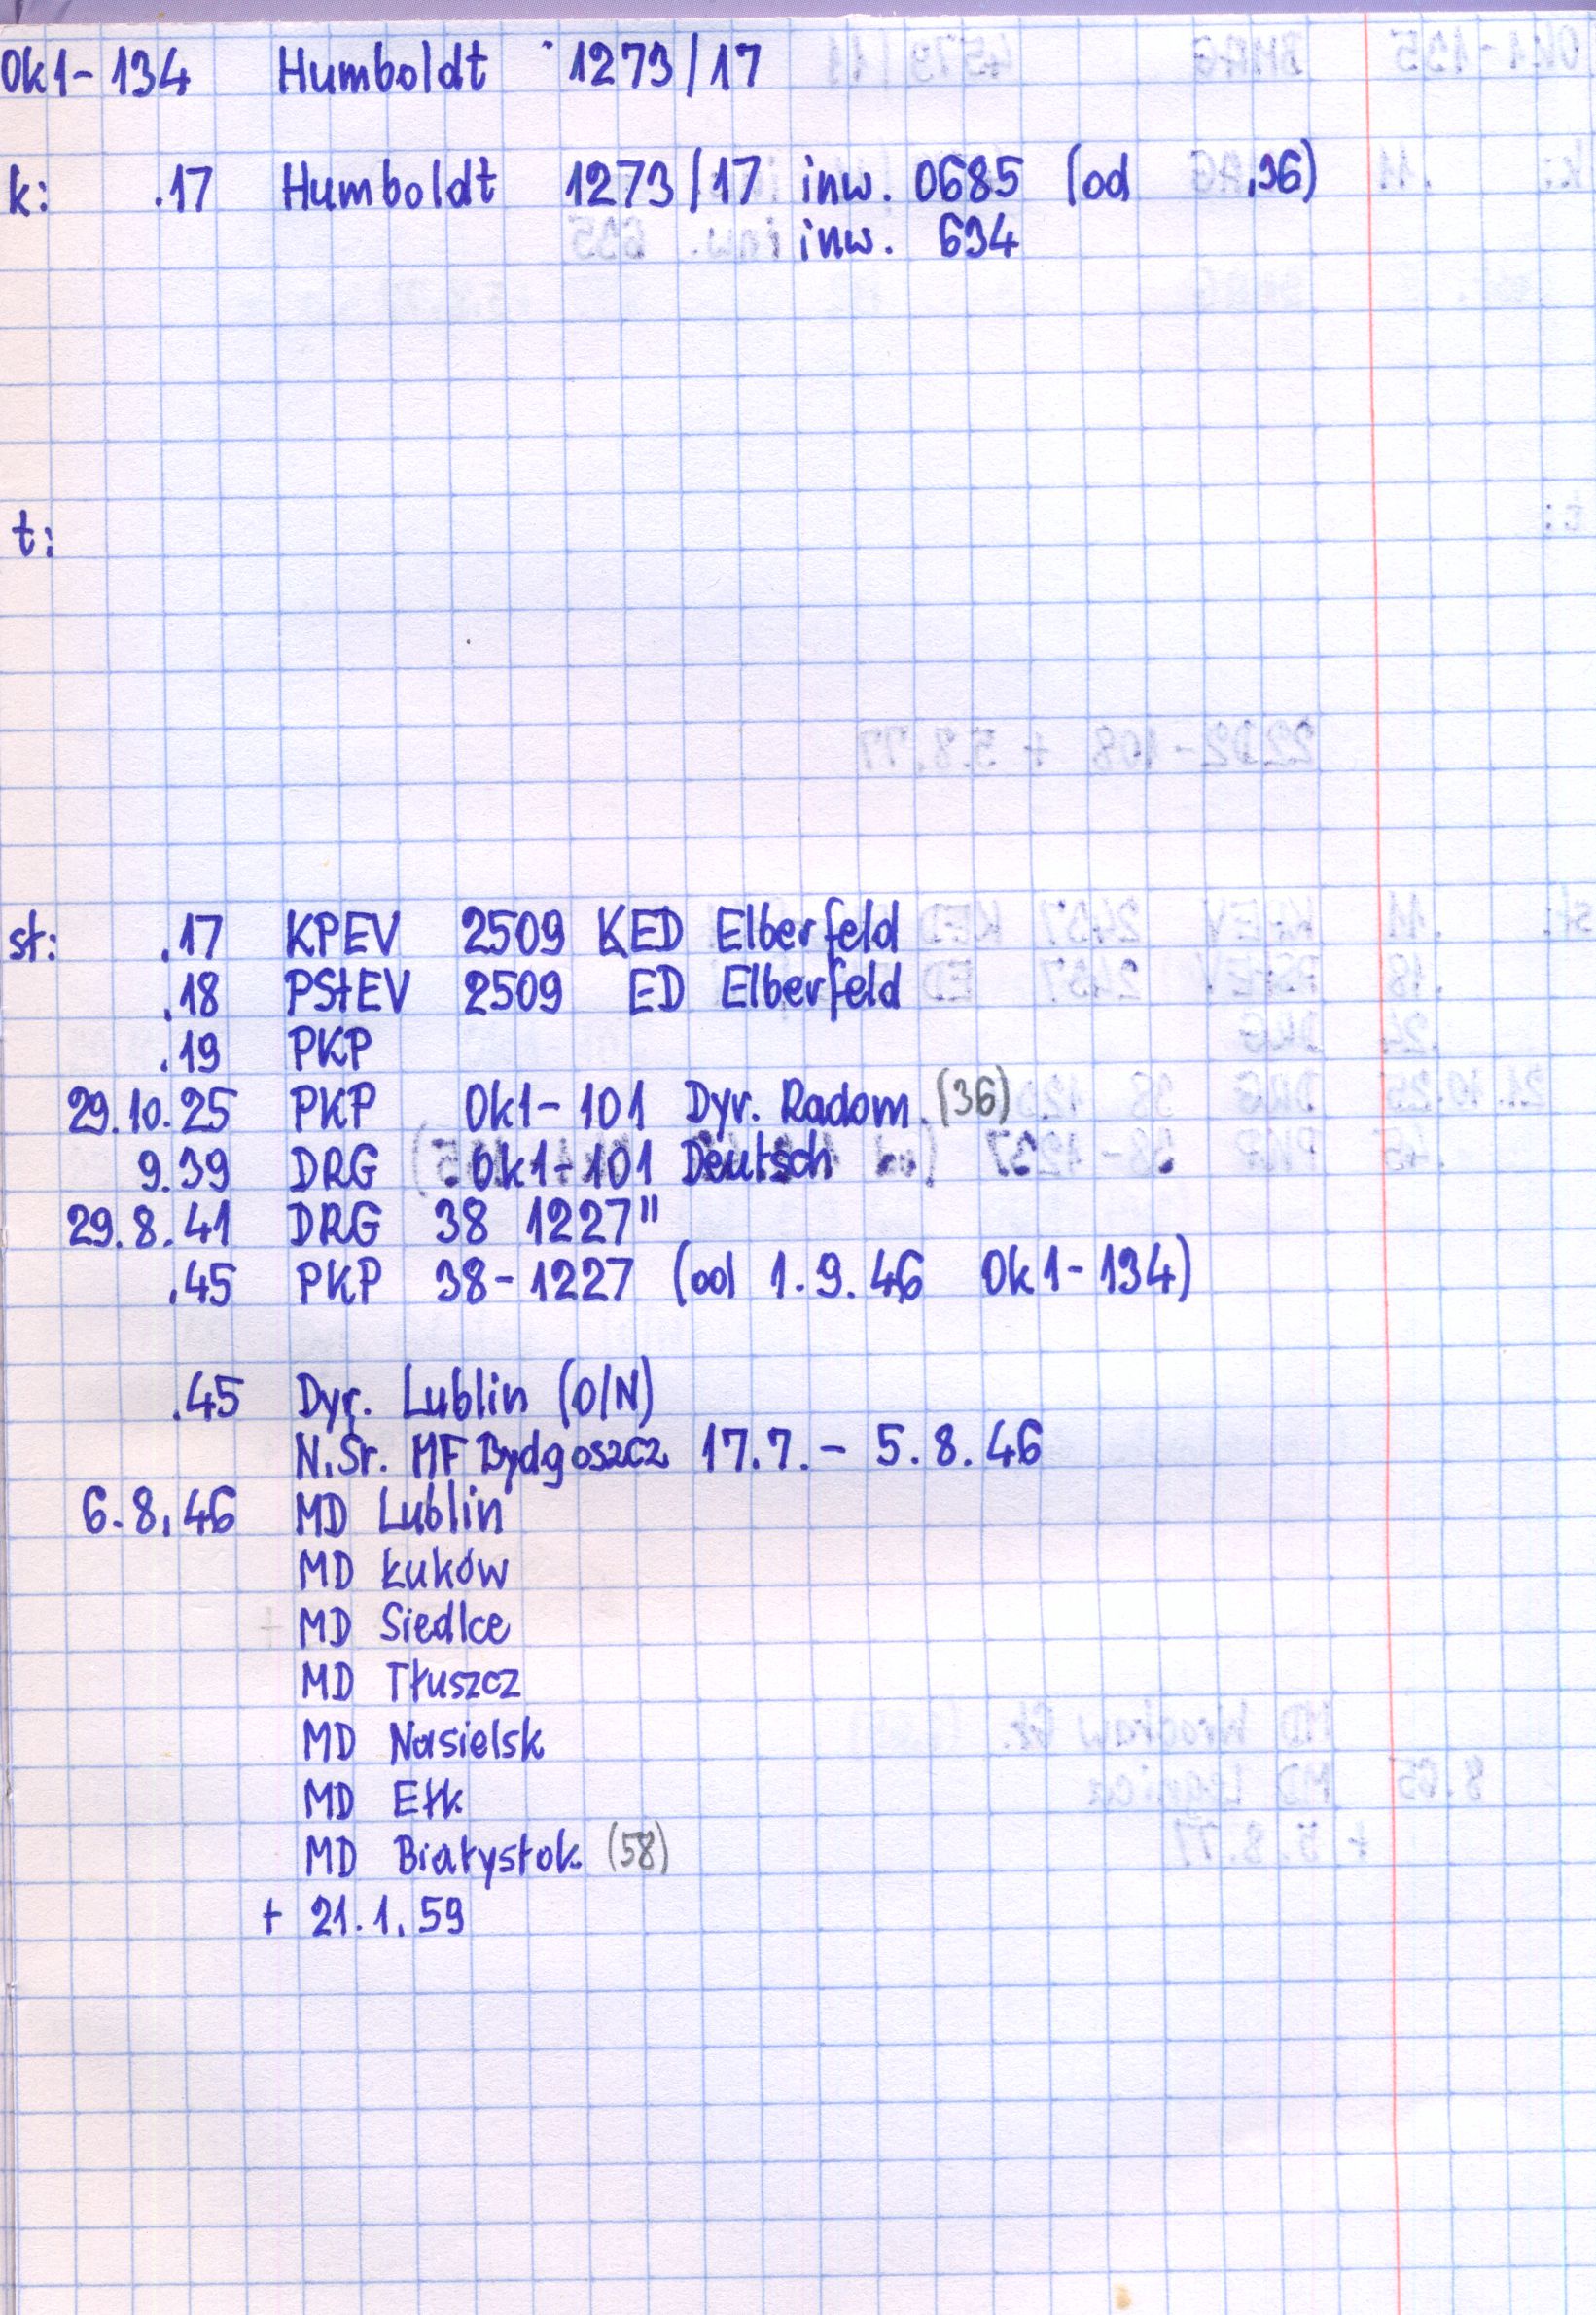 Ok1-134 Humboldt 1273/17
k: .17 Humboldt 1273/17 inw. 0685 (od .36)
inw. 634
t:
st: .17 KPEV 2509 KED Elberfeld
.18 PStEV 2509 ED Elberfeld
.19 PKP
29.10.25 PKP Ok1-101 Dyr. Radom (36)
9.39 DRG Ok1-101 Deutsch
29.8.41 DRG 38 1227"
.45 PKP 38-1227 (od 1.9.46 Ok1-134)
.45 Dyr. Lublin (O/N)
N.Śr. MF Bydgoszcz 17.7.- 5.8.46
6.8.46 MD Lublin
MD Łuków
MD Siedlce
MD Tłuszcz
MD Nasielsk
MD Ełk
MD Białystok (58)
+ 21.1.59